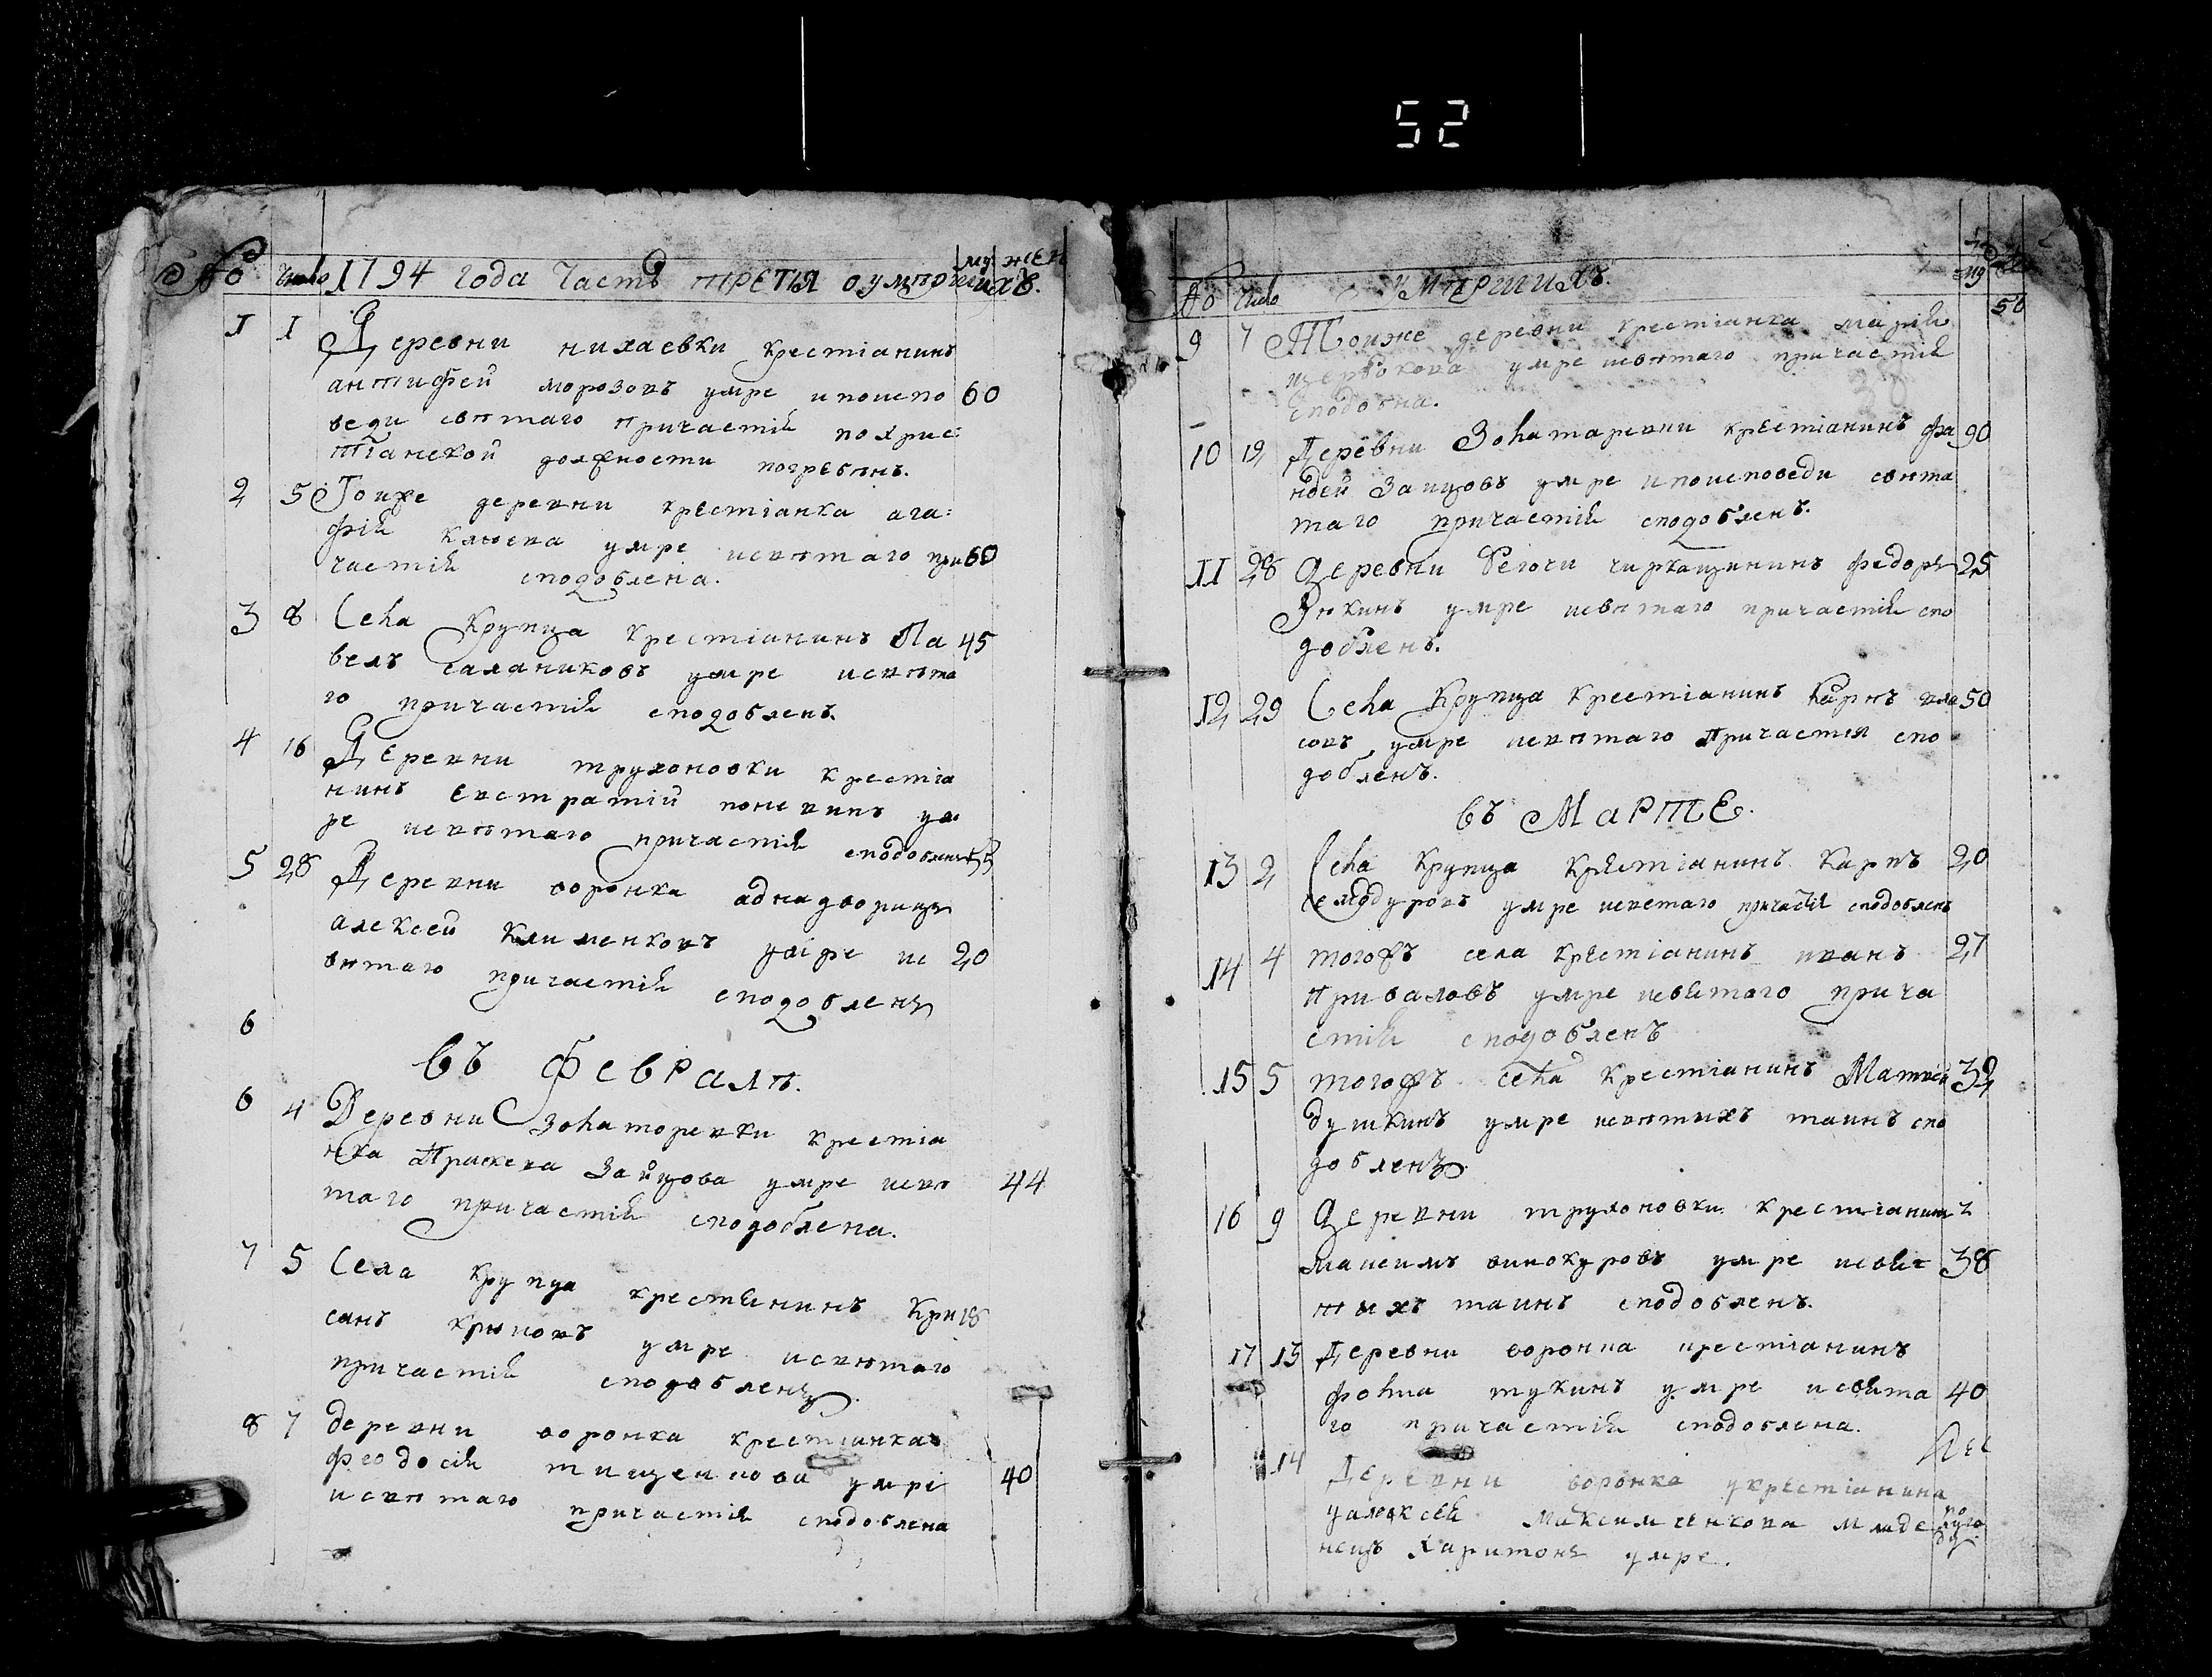 52
№ Число 1794 года Частъ третія о умершихъ. му жен
1 1 Деревни нихаевки крестіанинъ
антифей морозовъ умре и поиспо 60
веди святаго причастія по хрис:
тіанской должности погребенъ.
2 5 Тоиже деревни крестіанка ага:
фія клюева умре и святаго при 60
частія сподоблена.
3 8 Села Крупца крестіанинъ Па 45
велъ салаников умре и свята
го причастія сподобленъ.
4 16 Деревни трухоновки крестіа
нинъ Евстратій ум
ре и святаго причастія сподобленъ 55
5 28 Деревни воронка аднадворицъ
алексей клименковъ умре и с 20
вятаго причастія сподобленъ
6
въ Февралѣ.
6 4 Деревни золоторевки крестіа
нка Зайцова умре и свя 44
таго причастія сподоблена.
7 5 Села крупца крестянинъ Кри 18
санъ крюковъ умре и святаго
причастія сподобленъ.
8 7 деревни воронка крестіанка
феодосія тищенкова умре 40
и святаго причастія сподоблена
№ Число умершихъ. му
9 7 Тоиже деревни крестіанка марія 50
щербокова умре и святаго причастія
сподобна.
10 19 Деревни Золотаревки крестіанинъ фа 90
ддей Заицовъ умре и поисповеди свята
таго причастія сподобленъ.
11 28 Деревни Белочи чиркащининъ федоръ 25
Зюкинъ умре и святаго причастія спо
добленъ.
12 29 Села Крупца крестіанинъ Карпъ вла 50
совъ умре и святаго причастія спо
добленъ.
въ Марте.
13 2 Села Крупца крестіанинъ Карпъ 20
самодуровъ умре и светаго причастія сподобленъ
14 4 тогожъ села крестіанинъ иванъ 27
приваловъ умре и святого прича
стія сподобленъ
15 5 тогожъ села крестіанинъ Матвей 32
душкинъ умре и святихъ таинъ спо
добленъ.
16 9 Деревни трухоновки крестіанинъ
максимъ винокуровъ умре и свят 38
тыхъ таинъ сподобленъ.
17 13 Деревни воронка крестіанинъ
фома тукинъ умре и свята 40
го причастія сподоблена.
14 Деревни воронка укрестіанина
уалексея максимченкова младе полуго
нецъ харитонъ умре. ду